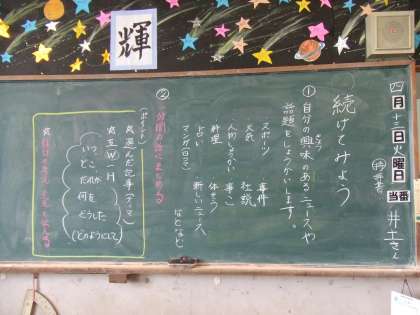 輝
四月十三日火曜日
当番
井土さん
続けてみよう
①自分の興味のあるニュースや
話題をしょうかいします。
スポーツ 事件
天気 社説
人物しょうかい 事こ
料理 体そう
占い 新しいニュース
マンガ(四コマ)
などなど
②一分間の話にまとめる
(ポイント)
☆選んだ記事(テーマ)
☆五W一H
いつ
どこ
だれが
何を
どうした
(どのようにして)